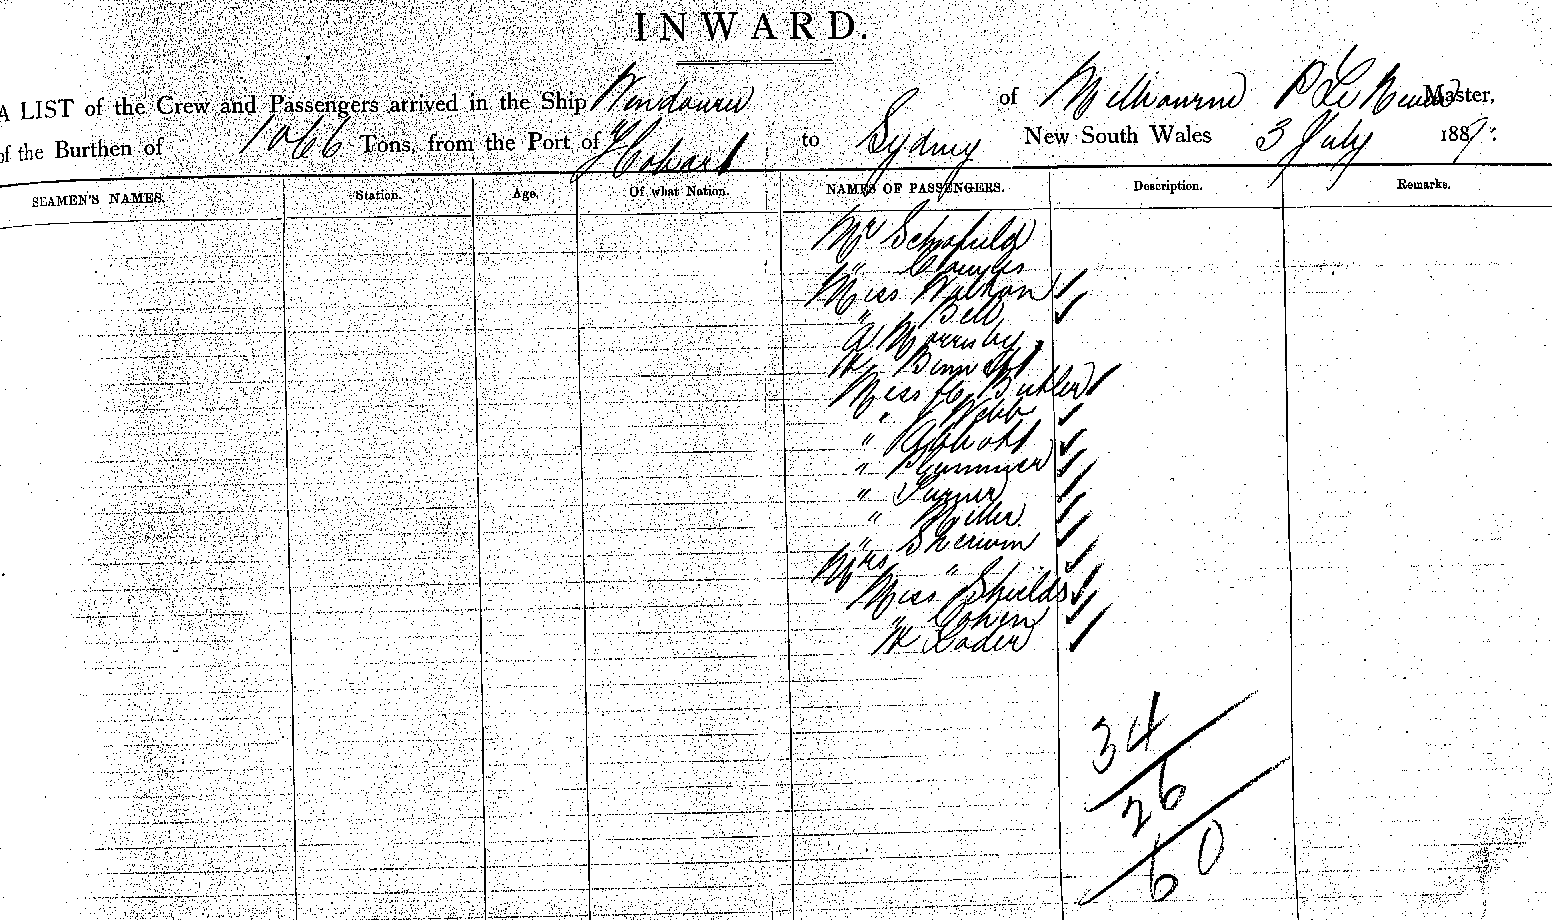 INWARD.
A LIST of the Crew and Passengers arrived in the Ship Wendouree of Melbourne P Le Neveu Master,
of the Burthen of 1066 Tons, from the Port of Hobart to Sydney New South Wales 3 July 1889.
SEAMEN'S NAMES. Station. Age. Of what Nation. NAMES OF PASSENGERS. Description. Remarks.
Mr Schofield
"
Miss Walton
" Bell
A Hornsby
W Bennett
Miss Butler
" Webb
" Abbott
" Plummer
" Turner
" Miller
" Sherwin
Mrs "
Miss Shields
" Cohen
W Loader
34
26
60